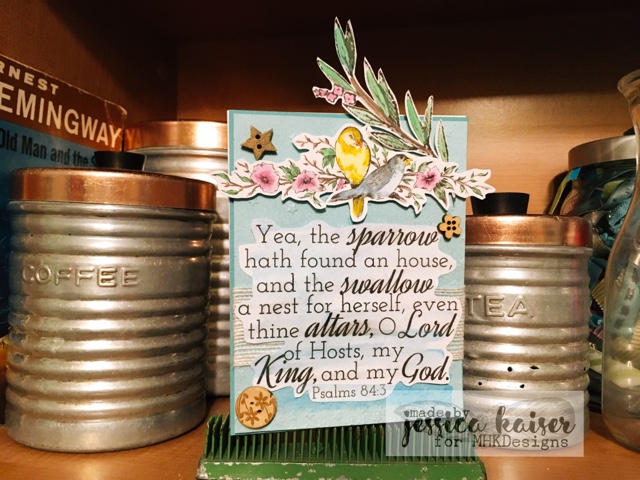 ERNEST
HEMINGWAY
Old Man and the
COFFEE
Yea, the sparrow
hath found an house,
and the swallow
a nest for herself, even
thine altars, O Lord
of Hosts, my
King, and my God.
Psalms 84:3
TEA
made by
jessica kaiser
for MHKDesigns